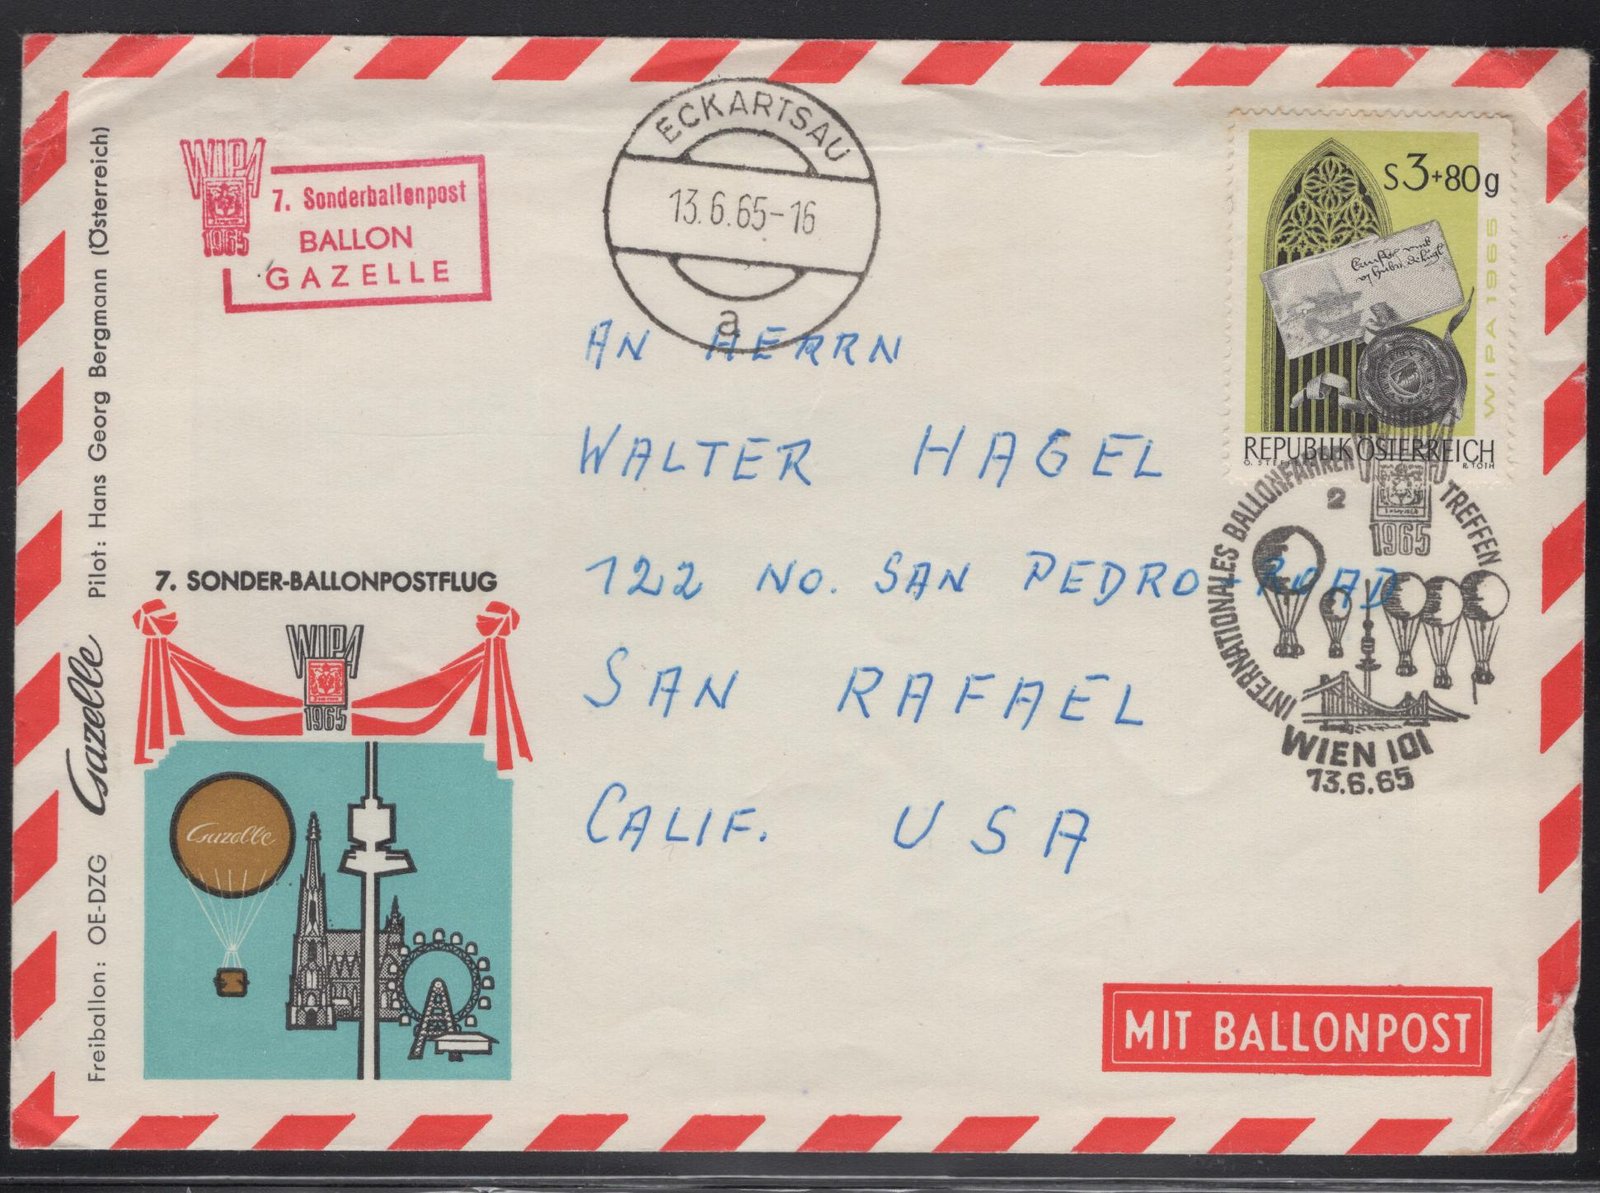 Freiballon: OE-DZG Gazelle Pilot: Hans Georg Bergmann (Österreich)
WIPA
1965
7. Sonderballonpost
BALLON
GAZELLE
ECKARTSAU
13.6.65-16
a
S3+80g
WIPA 1965
REPUBLIK ÖSTERREICH
R. TOTH
INTERNATIONALES BALLONFAHRER TREFFEN
2
1965
WIEN 101
13.6.65
AN HERRN
WALTER HAGEL
122 NO. SAN PEDRO-ROAD
SAN RAFAEL
CALIF. USA
7. SONDER-BALLONPOSTFLUG
WIPA
1965
Gazelle
MIT BALLONPOST